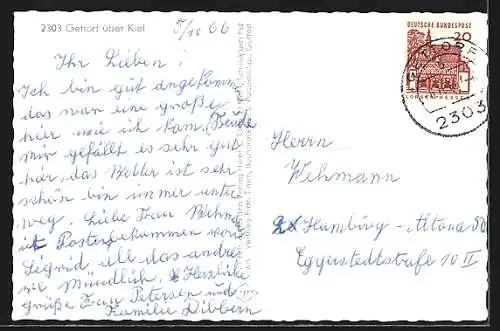 2303 Gettorf über Kiel
5/10 66
Ihr Lieben!
Ich bin gut angekomm
das war eine große
Freude
hier wie ich kam,
mir gefällt es sehr gut
hier, das Wetter ist sehr
schön bin immer unter
weg. Liebe Frau
Post bekommen von
Sigrid all das andre
Mündlich. Herzliche
grüße Frau Petersen und
Familie Dibbern
DEUTSCHE BUNDESPOST
20
LORSCH/HESSEN
2303
Herrn
Wehmann
2x Hamburg-Altona 50
Eggerstedtstraße 10 II